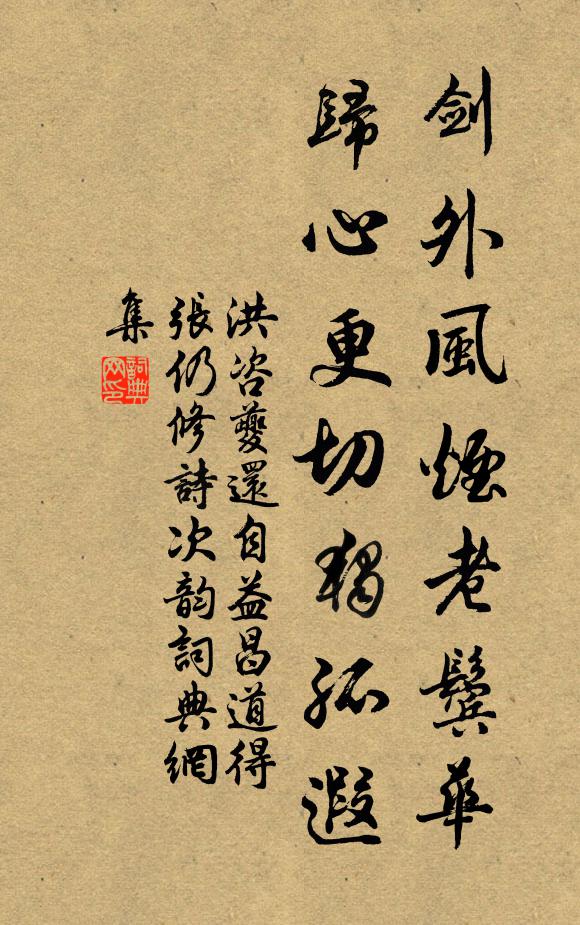 劍外風煙老鬢華
歸心更切獨孤遐
洪咨夔還自益昌道得
張仍修詩次韵詞典網
集
詞典
网印